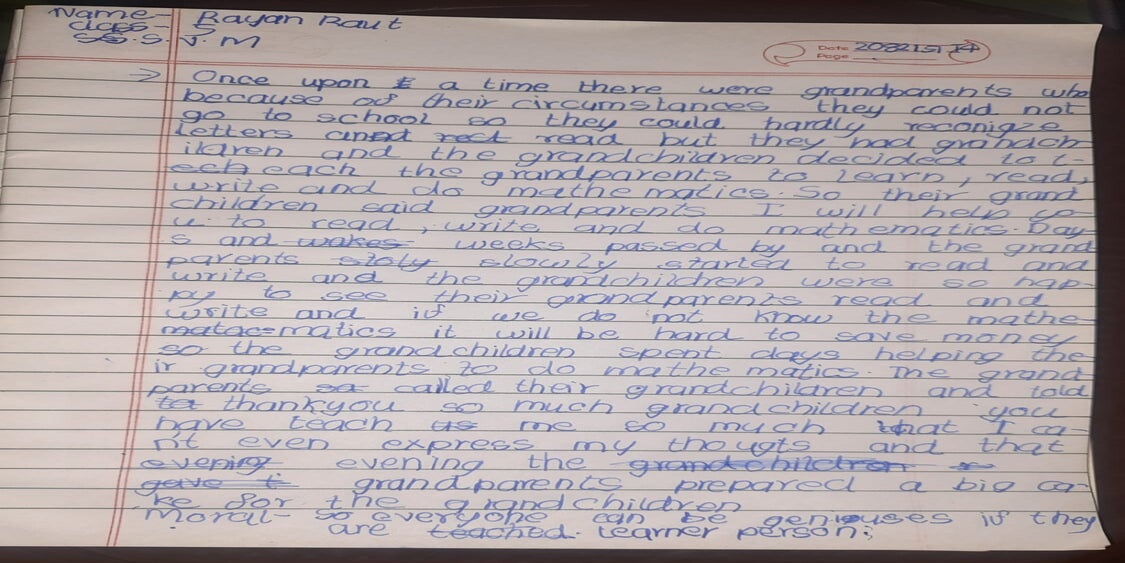 Name- Rayan Raut
class- 5
S.S.J.M
Date 2082151 14
Page
→ Once upon a time there were grandparents who
because of their circumstances they could not
go to school so they could hardly reconigze
letters and read but they had grandch
ildren and the grandchildren decided to t-
each the grandparents to learn, read,
write and do mathematics. So their grand
children said grandparents I will help yo-
u to read, write and do mathematics. Day
s and weeks passed by and the grand
parents slowly started to read and
write and the grandchildren were so hap-
py to see their grandparents read and
write and if we do not know the mathe
matics it will be hard to save money
so the grandchildren spent days helping the
ir grandparents to do mathematics. The grand
parents called their grandchildren and told
thankyou so much grandchildren you
have teach me so much that I ca-
n't even express my thougts and that
evening the
grandparents prepared a big ca-
ke for the grandchildren
Moral- everyone can be geniouses if they
are teached. learner person;